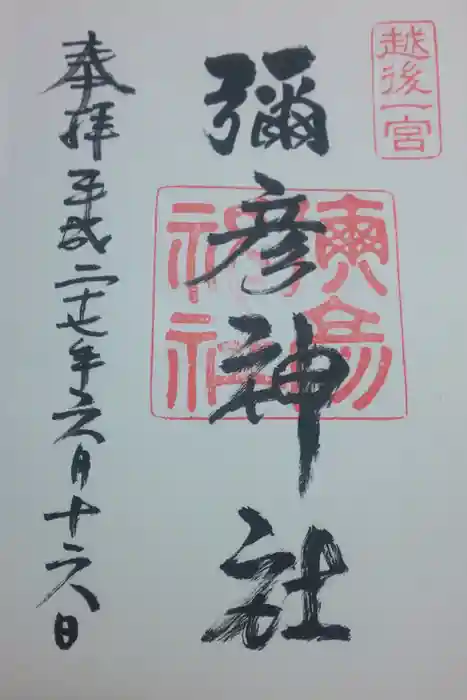 越後一宮
彌彦神社
奉拝 平成二十七年六月十六日